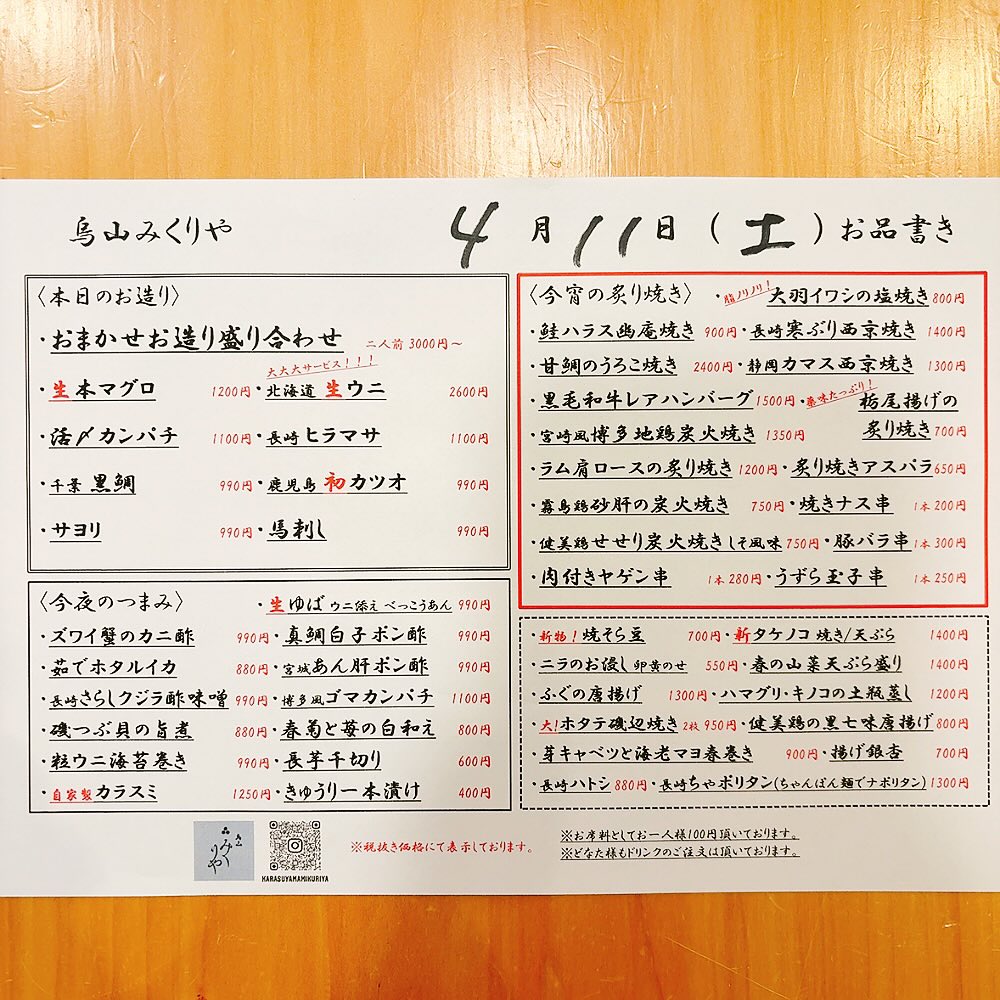 烏山みくりや 4月11日(土)お品書き
〈本日のお造り〉
・おまかせお造り盛り合わせ 二人前 3000円〜
・生本マグロ 1200円
大大大サービス!!!
・北海道 生ウニ 2600円
・活〆カンパチ 1100円・長崎 ヒラマサ 1100円
・千葉 黒鯛 990円・鹿児島 初カツオ 990円
・サヨリ 990円・馬刺し 990円
〈今夜のつまみ〉 ・生ゆば ウニ添え べっこうあん 990円
・ズワイ蟹のカニ酢 990円・真鯛白子ポン酢 990円
・茹でホタルイカ 880円・宮城あん肝ポン酢 990円
・長崎さらしクジラ酢味噌 990円・博多風ゴマカンパチ 1100円
・磯つぶ貝の旨煮 880円・春菊と苺の白和え 800円
・粒ウニ海苔巻き 990円・長芋千切り 600円
・自家製カラスミ 1250円・きゅうり一本漬け 400円
〈今宵の炙り焼き〉 ・脂ノリノリ!大羽イワシの塩焼き 800円
・鮭ハラス幽庵焼き 900円・長崎寒ぶり西京焼き 1400円
・甘鯛のうろこ焼き 2400円・静岡カマス西京焼き 1300円
・黒毛和牛レアハンバーグ 1500円・薬味たっぷり!栃尾揚げの
・宮崎風博多地鶏炭火焼き 1350円 炙り焼き 700円
・ラム肩ロースの炙り焼き 1200円・炙り焼きアスパラ 650円
・霧島鶏砂肝の炭火焼き 750円・焼きナス串 1本 200円
・健美鶏せせり炭火焼きしそ風味 750円・豚バラ串 1本 300円
・肉付きヤゲン串 1本 280円・うずら玉子串 1本 250円
・新物!焼そら豆 700円・新タケノコ 焼き/天ぷら 1400円
・ニラのお浸し 卵黄のせ 550円・春の山菜天ぷら盛り 1400円
・ふぐの唐揚げ 1300円・ハマグリ・キノコの土瓶蒸し 1200円
・大!ホタテ磯辺焼き 2枚 950円・健美鶏の黒七味唐揚げ 800円
・芽キャベツと海老マヨ春巻き 900円・揚げ銀杏 700円
・長崎ハトシ 880円・長崎ちゃポリタン(ちゃんぽん麺でナポリタン) 1300円
みくりや
KARASUYAMAMIKURIYA
※税抜き価格にて表示しております。
※お席料としてお一人様100円頂いております。
※どなた様もドリンクのご注文は頂いております。